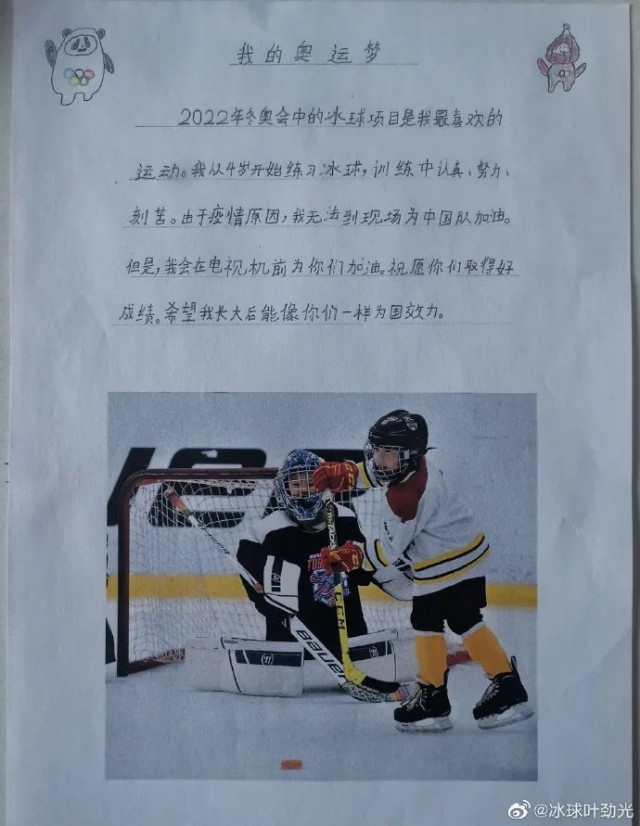 我的奥运梦
2022年冬奥会中的冰球项目是我最喜欢的
运动。我从4岁开始练习冰球，训练中认真、努力、
刻苦。由于疫情原因，我无法到现场为中国队加油。
但是，我会在电视机前为你们加油。祝愿你们取得好
成绩。希望我长大后能像你们一样为国效力。
BAUER
CCM
@冰球叶劲光